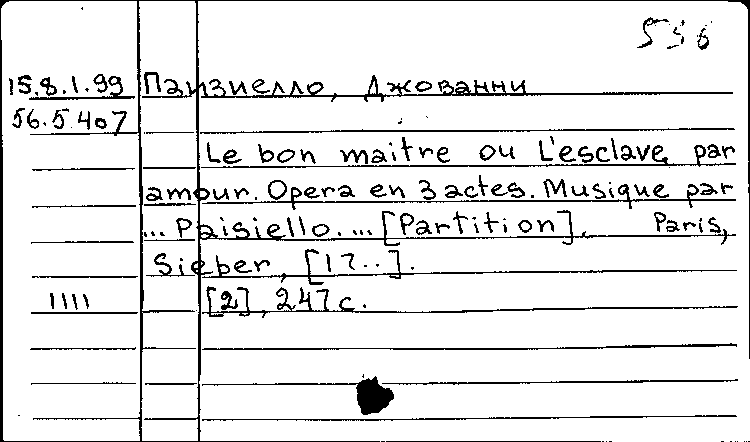 556
15.8.1.99 Паизиелло, Джованни
56.5.407
Le bon maitre ou L'esclave par
amour. Opera en 3 actes. Musique par
... Paisiello. ... [Partition]. Paris,
Sieber, [17..].
1111 [2], 247 с.